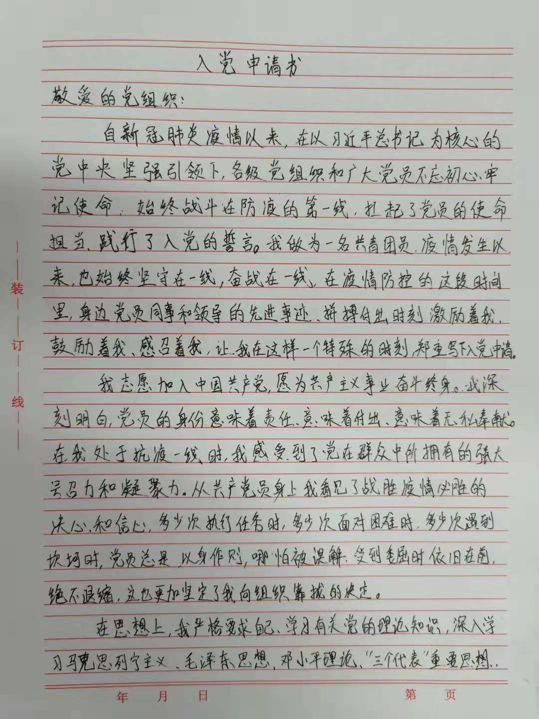 入党申请书
敬爱的党组织：
自新冠肺炎疫情以来，在以习近平总书记为核心的
党中央坚强引领下，各级党组织和广大党员不忘初心、牢
记使命，始终战斗在防疫的第一线，扛起了党员的使命
担当，践行了入党的誓言。我做为一名共青团员，疫情发生以
来，也始终坚守在一线，奋战在一线，在疫情防控的这段时间
里，身边党员同事和领导的先进事迹、拼搏付出时刻激励着我、
鼓励着我、感召着我，让我在这样一个特殊的时刻，郑重写下入党申请。
我志愿加入中国共产党，愿为共产主义事业奋斗终身。我深
刻明白，党员的身份意味着责任、意味着付出、意味着无私奉献。
在我处于抗疫一线时，我感受到了党在群众中所拥有的强大
号召力和凝聚力。从共产党员身上我看见了战胜疫情必胜的
决心和信心，多少次执行任务时，多少次面对困难时，多少次遇到
坎坷时，党员总是以身作则，哪怕被误解、受到委屈时依旧在前，
绝不退缩，这也更加坚定了我向组织靠拢的决定。
在思想上，我严格要求自己，学习有关党的理论知识，深入学
习马克思列宁主义、毛泽东思想，邓小平理论、“三个代表”重要思想、
装
订
线
年 月 日 第 页